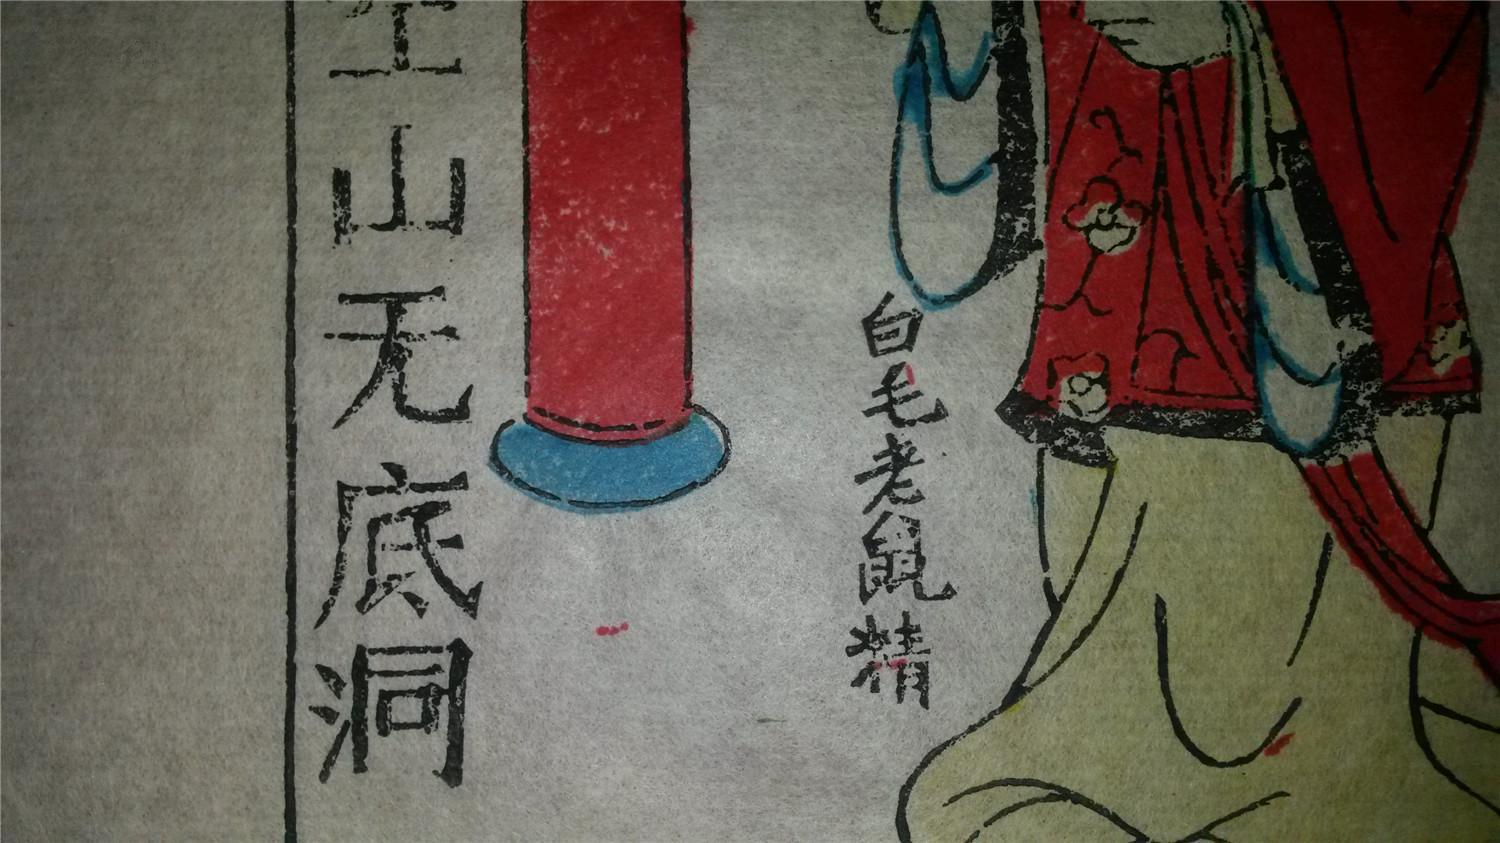 白毛老鼠精
空山无底洞